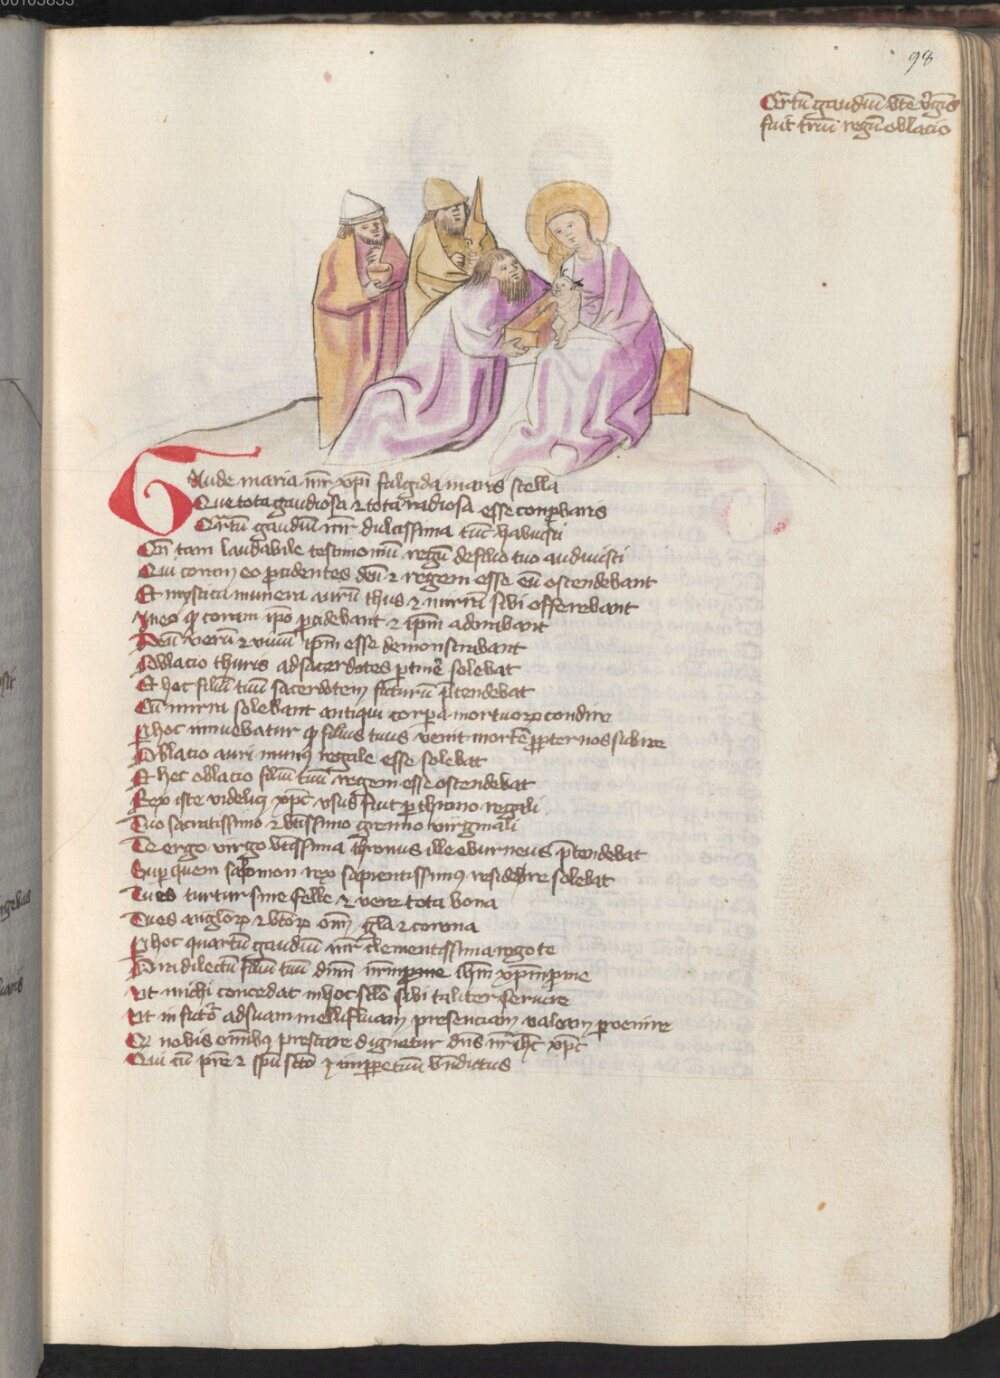 98
Qrtū gaudiū bte v̄gīs
fuit triū regū oblacio
Gaude maria mr̄ xp̄i fulgida maris stella
Que tota gaudiosa ⁊ tota radiosa esse conp̱baris
Qrtū gaudiū mr̄ dulcissima tūc habuisti
Cū tam laudabile testimoniū regū de filio tuo audiuisti
Qui coram eo p̱cidentes deū ⁊ regem esse eū ostendebant
Et mystica munera aurū thus ⁊ mirrā sibi offerebant
In eo ꝙ coram ip̄o p̱cidebant ⁊ ip̄m adorabant
Deū verū ⁊ viuū ip̄m esse demonstrabant
Oblacio thuris ad sacerdotes p̱tinē solebat
Et hoc filiū tuū sacerdotem futurū p̄tendebat
Cū mirra solebant antiqui corpa mortuoꝝ condire
P̱ hoc innuebatur ꝙ filius tuus venit mortē ꝓpter nos subire
Oblacio auri munꝰ regale esse solebat
Et hec oblacio filiū tuū regem esse ostendebat
Rex iste videlicꝫ xp̄c vsus fuit p̱ throno regali
Tuo sacratissimo ⁊ btissimo gremio virginali
Te ergo virgo btissima thronus ille eburneus p̄tendebat
Sup quem salomon rex sapientissimꝰ residere solebat
Tu es turtur sine felle ⁊ vere tota bona
Tu es angloꝝ ⁊ btoꝝ om̄ gl̄a ⁊ corona
P̱ hoc quartū gaudiū mr̄ clementissima rogo te
Ora dilectū filiū tuū dnm̄ nr̄m ih̄m xp̄m p̱ me
Ut michi concedat in hoc sclō sibi taliter seruire
Ut in futō ad suam mellifluam presenciam valeam p̱uenire
Qd nobis omībꝰ prestare dignatur dn̄s nr̄ ih̄c xp̄c
Qui cū pr̄e ⁊ sp̄u sctō ē inp̱petuū bn̄dictus